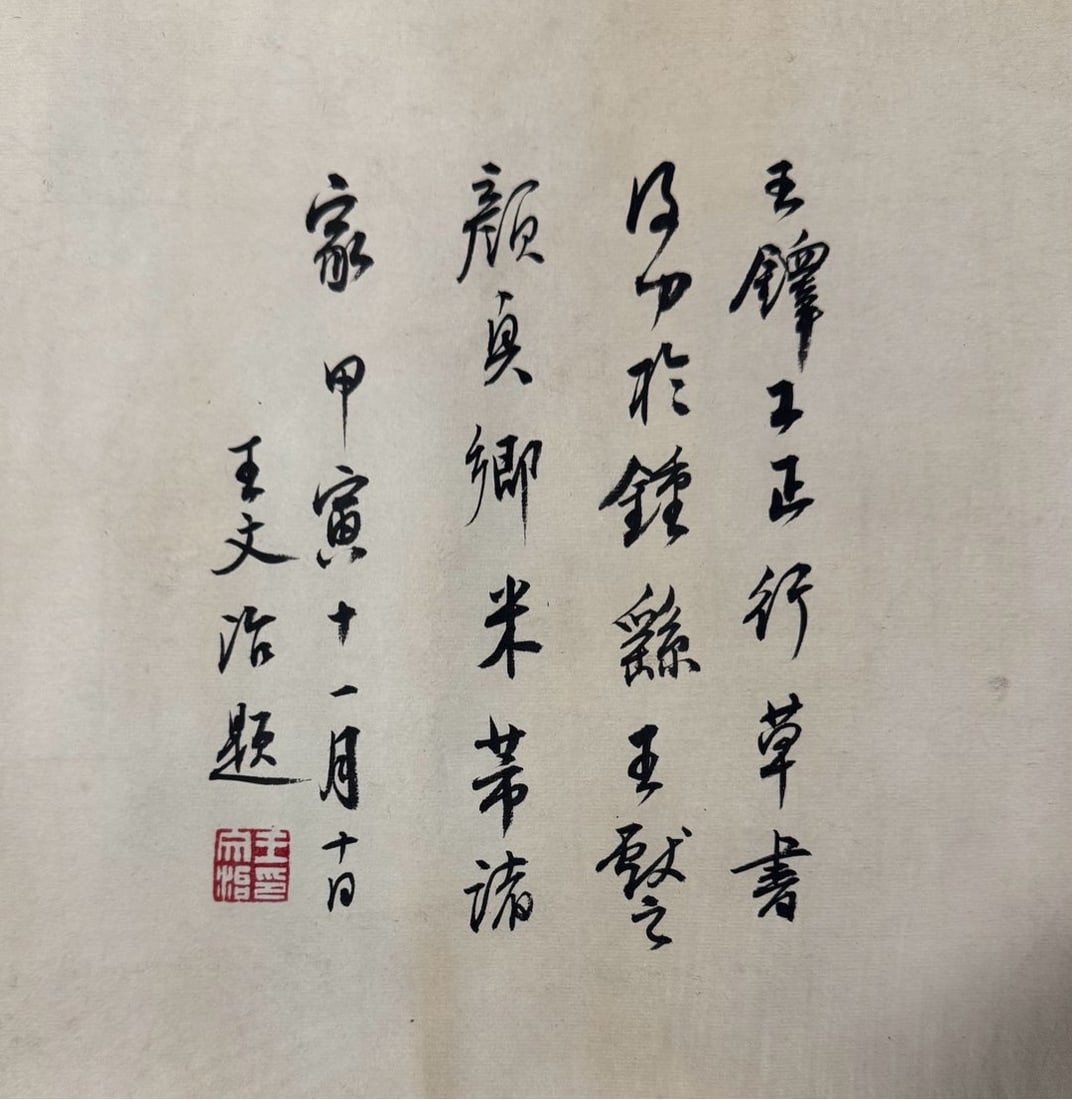 王鐸工正行草書
得力於鍾繇王獻之
顏真卿米芾諸
家甲寅十一月十日
王文治題
王文治印